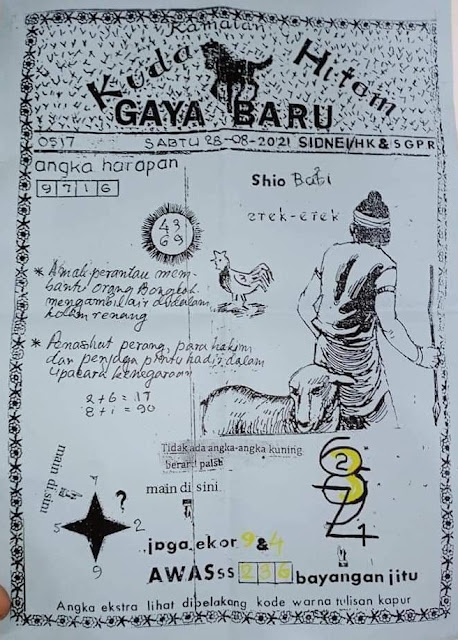 Ramalan
Kuda Hitam
GAYA BARU
0517 SABTU 28-08-2021 SIDNEI/HK & SGPR
angka harapan
9716
Shio Babi
erek-erek
43
69
* Anak perantau mem-
bantu orang Bongkok
mengambil air didalam
kolam renang
* Penasihat perang, para hakim
dan penjaga pintu hadir dalam
upacara kenegaraan
2+6 = 17
8+1 = 90
Tidak ada angka-angka kuning
berarti palsu
main di sini
main di sini
7
?
5
2
9
6
2
3
7
4
jaga ekor 9 & 4
AWASss 236 bayangan jitu
Angka ekstra lihat dibelakang kode warna tulisan kapur